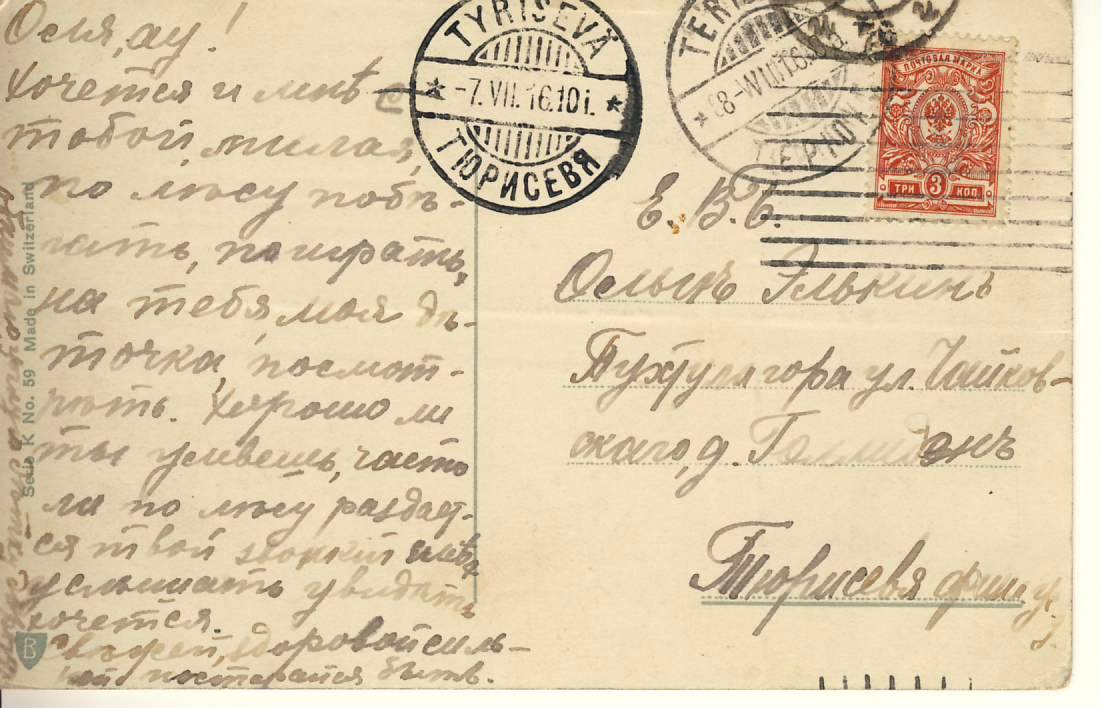 Осля, ау!
Хочется и мнѣ с
тобой, милая,
по лѣсу побѣ-
гать, поиграть,
на тебя, моя дѣ-
точка, посмот-
рѣть. Хорошо ли
ты живешь, часто
ли по лѣсу раздает-
ся твой звонкий смѣх
услышать увидать
хочется.
Свѣжей, здоровой силь-
ной постарайся быть.
Series K No. 59 Made in Switzerland
B
TYRISEVÄ
-7.VII.16.10 i.
ТЮРИСЕВЯ
TERI
*08-VIII.16
ТЕРІОК
ПОЧТОВАЯ МАРКА
ТРИ 3 КОП
Е. В. Б.
Ослыкъ Элькинъ
Пухтула гора ул. Чайков-
скаго, д.
Тюрисевя фин. ж.